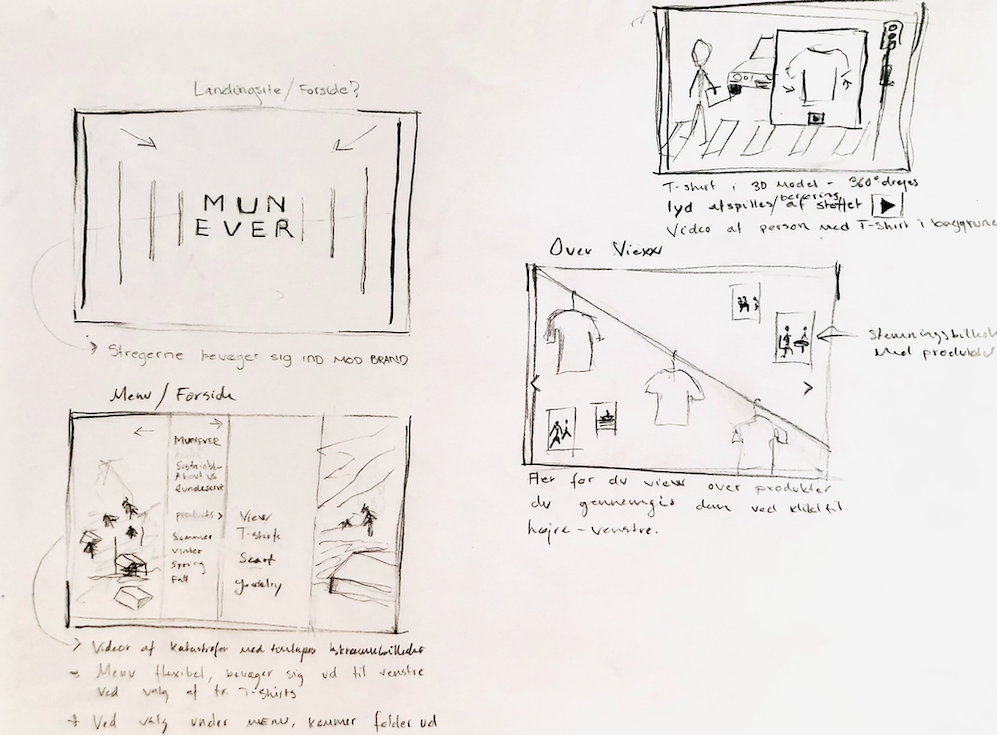 Landingsite/Forside?
MUN
EVER
Stregerne bevæger sig IND MOD BRAND
Menu/Forside
MUNEVER
About us
Kundeservice
products >
Sommer
Vinter
Spring
Fall
View
T-shirts
Scarf
Videor af katastrofer med
Menu flexibel, bevæger sig ud til venstre
Ved valg af fx T-shirts
Ved valg under MENU, kommer folder ud
T-shirt i 3D Model - 360° drejes
lyd afspilles/berøring af stoffet
Video af person med T-shirt i baggrund
Over View
Med produkter
Her får du view over produkter
du gennemgår dem ved klik til
højre-venstre.